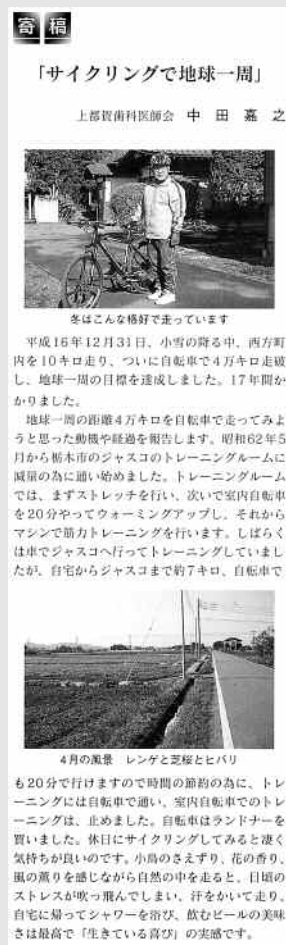 寄稿
「サイクリングで地球一周」
上都賀歯科医師会 中田嘉之
冬はこんな格好で走っています
平成16年12月31日、小雪の降る中、西方町
内を10キロ走り、ついに自転車で4万キロ走破
し、地球一周の目標を達成しました。17年間か
かりました。
地球一周の距離4万キロを自転車で走ってみよ
うと思った動機や経過を報告します。昭和62年5
月から栃木市のジャスコのトレーニングルームに
減量の為に通い始めました。トレーニングルーム
では、まずストレッチを行い、次いで室内自転車
を20分やってウォーミングアップし、それから
マシンで筋力トレーニングを行います。しばらく
は車でジャスコへ行ってトレーニングしていまし
たが、自宅からジャスコまで約7キロ、自転車で
4月の風景 レンゲと芝桜とヒバリ
も20分で行けますので時間の節約の為に、トレ
ーニングには自転車で通い、室内自転車でのトレ
ーニングは、止めました。自転車はランドナーを
買いました。休日にサイクリングしてみると凄く
気持ちが良いのです。小鳥のさえずり、花の香り、
風の薫りを感じながら自然の中を走ると、日頃の
ストレスが吹っ飛んでしまい、汗をかいて走り、
自宅に帰ってシャワーを浴び、飲むビールの美味
さは最高で「生きている喜び」の実感です。